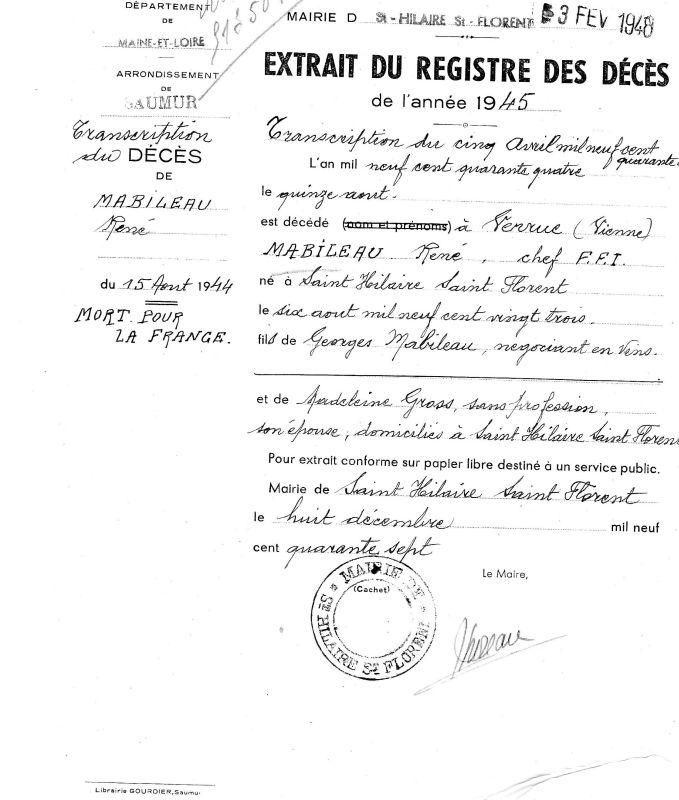 DÉPARTEMENT
DE
MAINE-ET-LOIRE
ARRONDISSEMENT
DE
SAUMUR
Transcription
du DÉCÈS
DE
MABILEAU
René
du 15 Aout 1944
MORT POUR
LA FRANCE.
MAIRIE D St-HILAIRE St-FLORENT 3 FEV 1948
EXTRAIT DU REGISTRE DES DÉCÈS
de l'année 1945
Transcription du cinq Avril mil neuf cent
quarante
L'an mil neuf cent quarante quatre
le quinze aout.
est décédé (nom et prénoms) à Verrue (Vienne)
MABILEAU René, chef F.F.I.
né à Saint Hilaire Saint Florent
le six aout mil neuf cent vingt trois.
fils de Georges Mabileau, negociant en Vins.
et de Madeleine Gross, sans profession,
son épouse, domiciliés à Saint Hilaire Saint Floren
Pour extrait conforme sur papier libre destiné à un service public.
Mairie de Saint Hilaire Saint Florent
le huit décembre mil neuf
cent quarante sept
Le Maire,
MAIRIE DE
St HILAIRE St FLORENT
(Cachet)
Librairie GOURDIER, Saumur